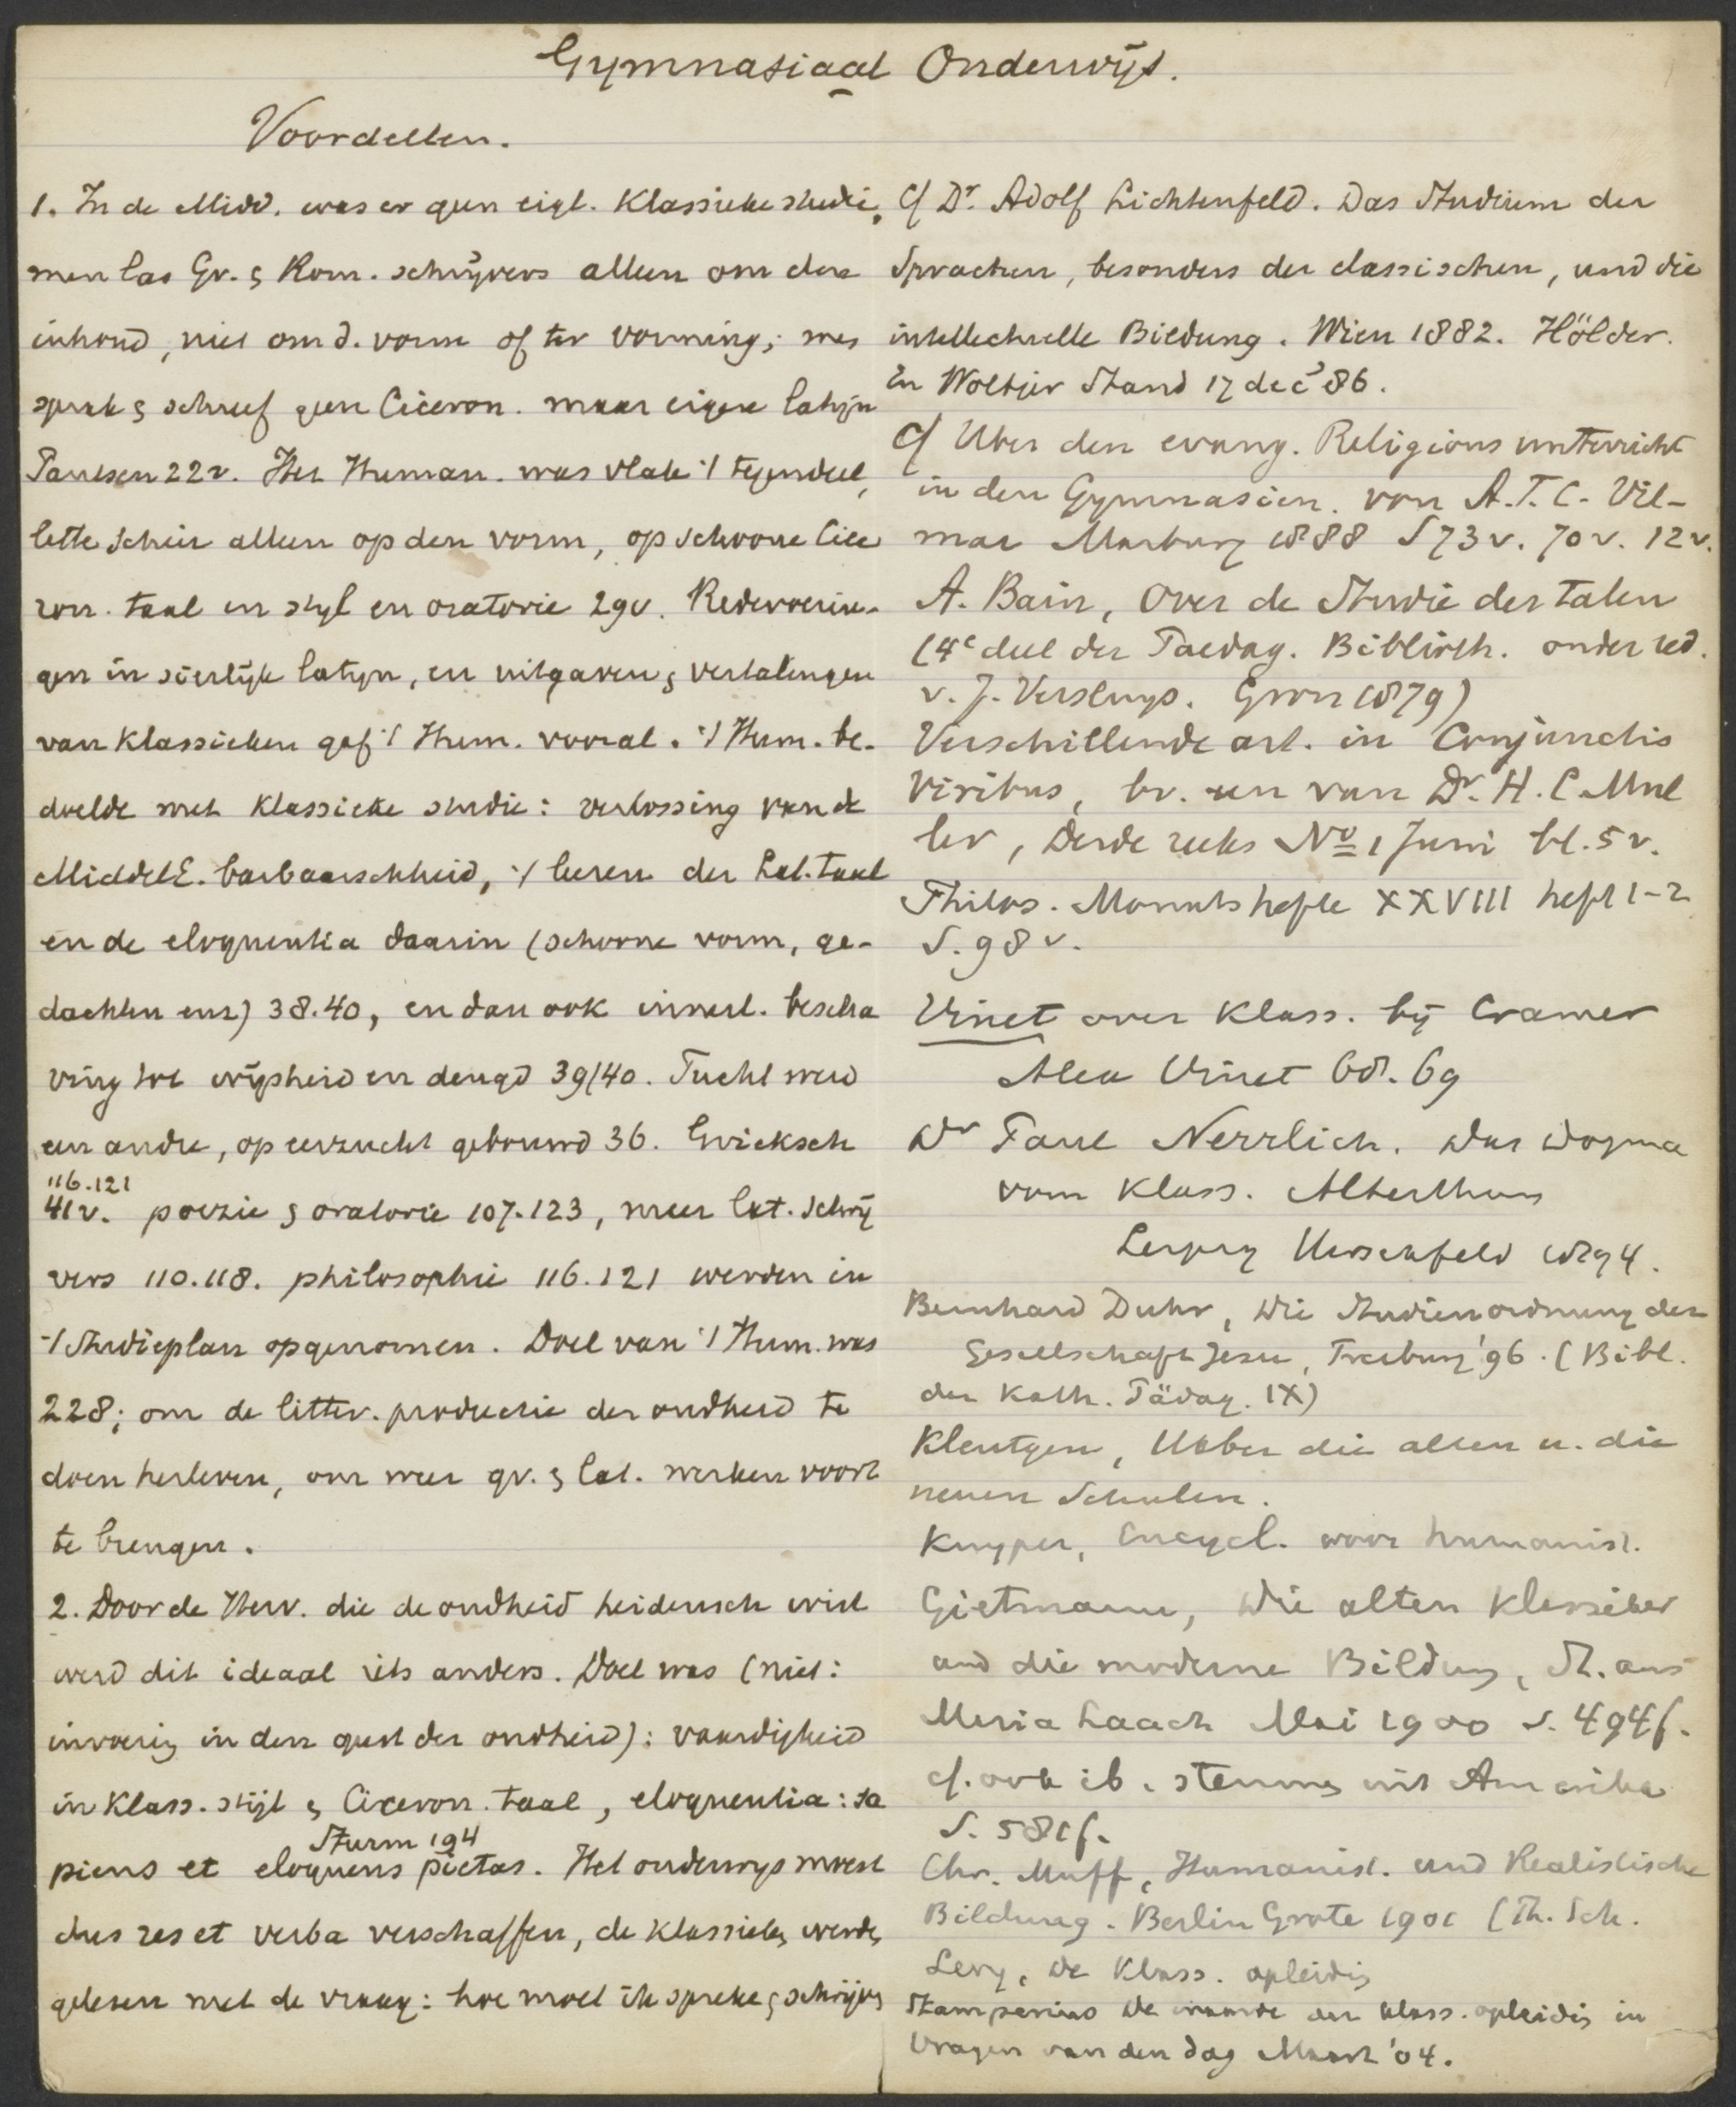 Gymnasiaal Onderwijs.
Voordeelen.
1. In de Midd. was er geen eigl. Klassieke studie,
men las Gr. & Rom. schrijvers alleen om den
inhoud, niet om d. vorm of ter vorming; men
sprak & schreef geen Ciceron. maar eigen latijn
Paulsen 22v. Het Human. was vlak 't tegendeel,
lette schier alleen op den vorm, op schoone Cice
ron. taal en stijl en oratorie 29v. Redevoerin-
gen in sierlijk latijn, en uitgaven & vertalingen
van Klassieken gaf 't Hum. vooral. 't Hum. be-
doelde met Klassieke studie: verlossing van de
MiddelE. barbaarschheid, 't leeren der Lat. taal
en de eloquentia daarin (schoone vorm, ge-
dachten enz) 38.40, en dan ook innerl. bescha
ving tot wijsheid en deugd 39/40. Tucht werd
een andre, op eerzucht gebouwd 36. Grieksch
116.121
41v. poezie & oratorie 107.123, meer lat. schrij
vers 110.118. philosophie 116.121 werden in
't Studieplan opgenomen. Doel van 't Hum. was
228; om de litter. productie der oudheid te
doen herleven, om weer gr. & lat. werken voort
te brengen.
2. Door de Herv. die de oudheid heidensch wist
werd dit ideaal iets anders. Doel was (niet:
invoering in den geest der oudheid): vaardigheid
in Klass. stijl & Ciceron. taal, eloquentia: sa
Sturm 194
piens et eloquens pietas. Het onderwijs moest
dus res et verba verschaffen, de Klassieken werden
gelezen met de vraag: hoe moet ik spreken & schrijven
Cf Dr. Adolf Lichtenfeld. Das Studium der
Sprachen, besonders der classischen, und die
intellectuelle Bildung. Wien 1882. Hölder.
En Woltjer Stand 17 dec '86.
Cf Uber den evang. Religions unterricht
in den Gymnasien. von A.F.C. Vil-
mar Marburg 1888 S 73v. 70v. 12v.
A. Bain, Over de Studie der talen
(4e deel der Paedag. Biblioth. onder red.
v. J. Versluys. Gron 1879)
Verschillende art. in Conjunctis
Viribus, bv. een van Dr. H. C. Mul
ler, Derde reeks No 1 Juni bl. 5v.
Philos. Monatshefte XXVIII heft 1-2
S. 98v.
Vinet over Klass. bij Cramer
Alex Vinet 68.69
Dr Paul Nerrlich. Das Dogma
vom Klass. Alterthum
Leipzig Hirschfeld 1894.
Bernhard Duhr, Die Studienordnung der
Gesellschaft Jesu, Freiburg '96. (Bibl.
der Kath. Pädag. IX)
Kleutgen, Ueber die alten u. die
neuen Schulen.
Kuyper, Encycl. voor humanist.
Gietmann, Die alten Klassiker
und die moderne Bildung, St. aus
Maria Laach Mai 1900 S. 494f.
cf. ook ib. stemmen uit Amerika
S. 581f.
Chr. Muff, Humanist. und Realistische
Bildung. Berlin Grote 1901 (Th. Sch.
Levy, De Klass. opleiding
Stamperius De waarde der klass. opleiding in
Vragen van den dag Maart '04.